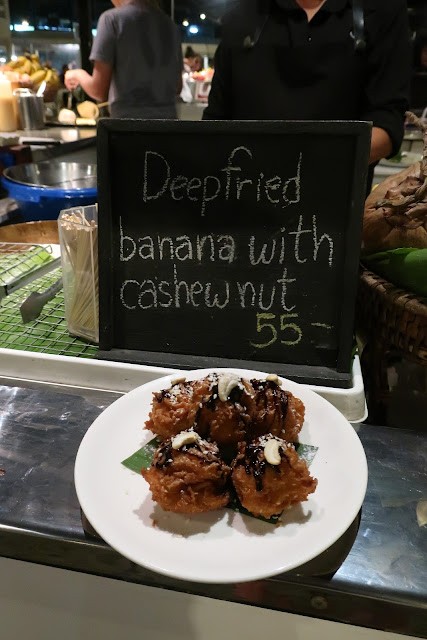 Deepfried
banana with
cashew nut
55-